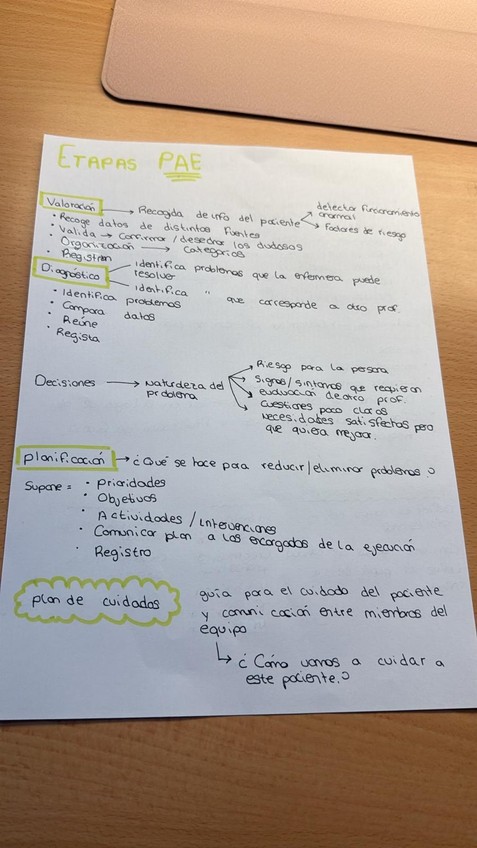 ETAPAS PAE
Valoración → Recogida de info del paciente
detectar funcionamiento anormal
Factores de riesgo
· Recoge datos de distintas fuentes
· Valida → Confirmar / desechar los dudosos
Organización → categorías
· Registran
Diagnóstico
Identifica problemas que la enfermera puede resolver
Identifica " que corresponde a otro prof.
· Identifica problemas
· Compara datos
· Reúne
· Registra
Decisiones → Naturaleza del problema
Riesgo para la persona
Signos/síntomas que requieran
evaluación de otro prof.
Cuestiones poco claras
Necesidades satisfechas pero
que quiera mejorar.
Planificación → ¿Qué se hace para reducir/eliminar problemas?
Supone = · Prioridades
· Objetivos
· Actividades / Intervenciones
· Comunicar plan a los encargados de la ejecución
· Registro
plan de cuidados
guía para el cuidado del paciente
y comunicación entre miembros del
equipo
↳ ¿Cómo vamos a cuidar a
este paciente?